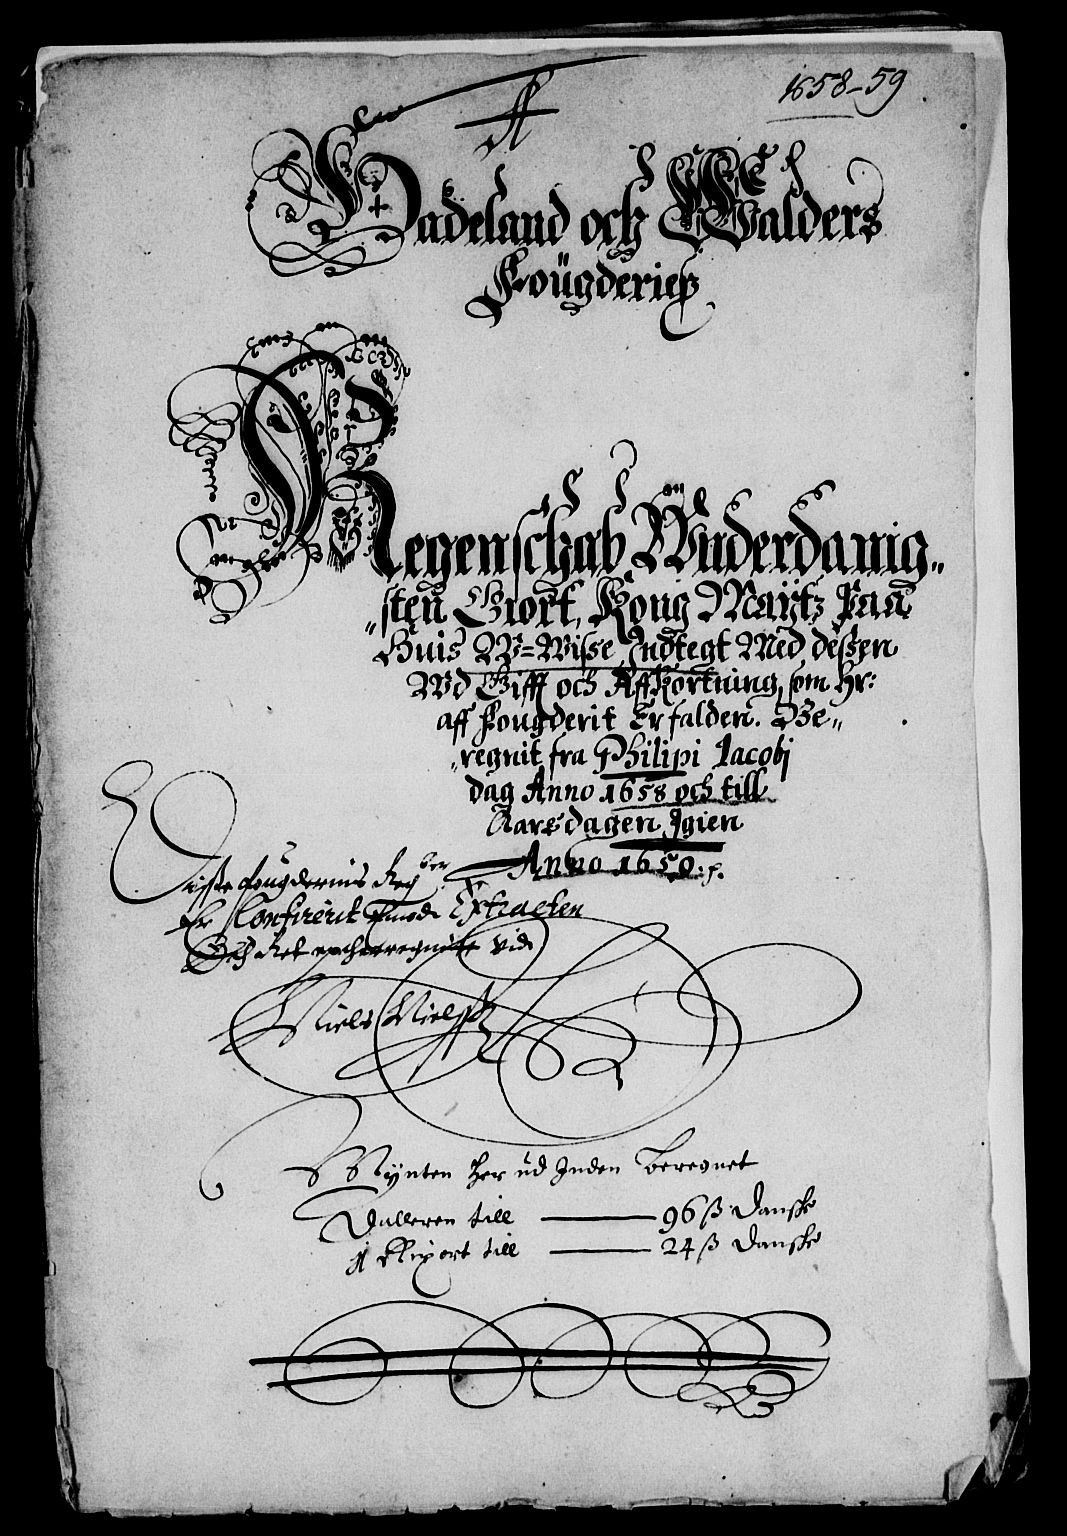 1658-59
Hadeland och Walders
Fougderieß
Regenschab Wnderdanig„
„sten Giort, Kong Maÿtz Paa
Huis W=Wisse Indtegt Med deßen
Wd Gifft och Affkortning, som hr:
aff Fougderit Er falden. Be„
„regnit fra Philipi Jacobj
dag Anno 1658 och till
Aarsdagen Igien
Anno 1659:
Disse fougderiis Reg
Er Confirerit imod Extracten
Och Ret
Niels Nielsß
Mÿnten her ud Inden beregnet
Dalleren till — 96 ß Danske
1 Rixort till — 24 ß Danske